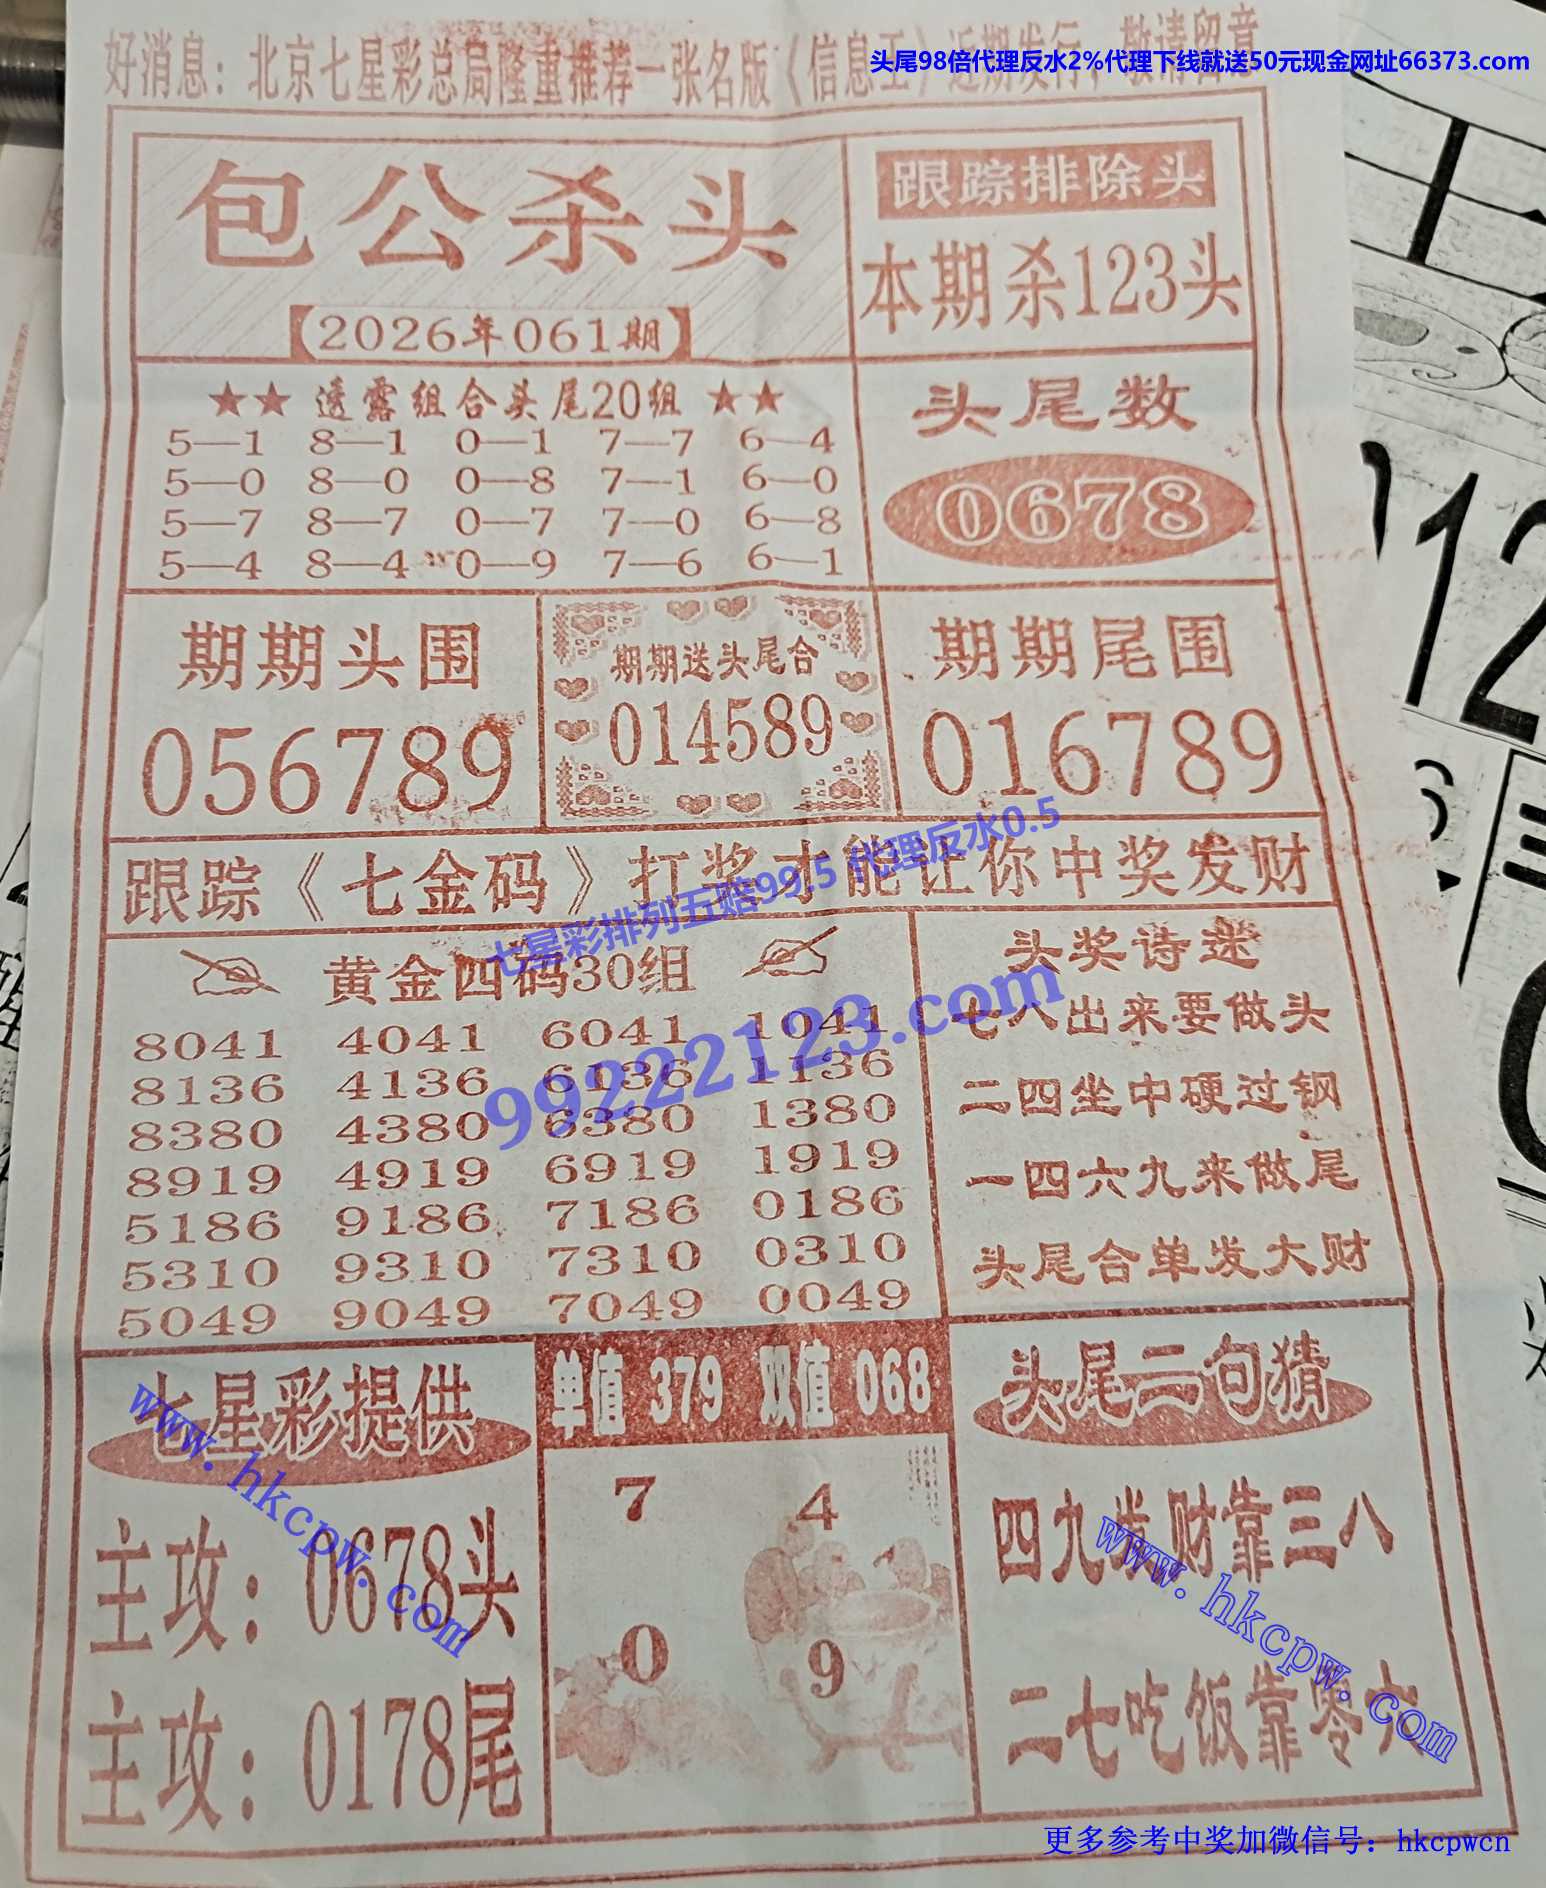 好消息：北京七星彩总局隆重推荐一张名版《信息王》近期发行，敬请留意
头尾98倍代理反水2%代理下线就送50元现金网址66373.com
包公杀头
【2026年061期】
跟踪排除头
本期杀123头
★★ 透露组合头尾20组 ★★
5—1 8—1 0—1 7—7 6—4
5—0 8—0 0—8 7—1 6—0
5—7 8—7 0—7 7—0 6—8
5—4 8—4 0—9 7—6 6—1
头尾数
0678
期期头围
056789
期期送头尾合
014589
期期尾围
016789
跟踪《七金码》打奖才能让你中奖发财
七星彩排列五赔99.5 代理反水0.5
99222123.com
黄金四码30组
8041 4041 6041 1041
8136 4136 6136 1136
8380 4380 6380 1380
8919 4919 6919 1919
5186 9186 7186 0186
5310 9310 7310 0310
5049 9049 7049 0049
头奖诗迷
七八出来要做头
二四坐中硬过钢
一四六九来做尾
头尾合单发大财
七星彩提供
主攻：0678头
主攻：0178尾
www.hkcpw.com
单值 379 双值 068
7 4
0 9
头尾二句猜
四九发财靠三八
二七吃饭靠零六
www.hkcpw.com
更多参考中奖加微信号：hkcpwcn